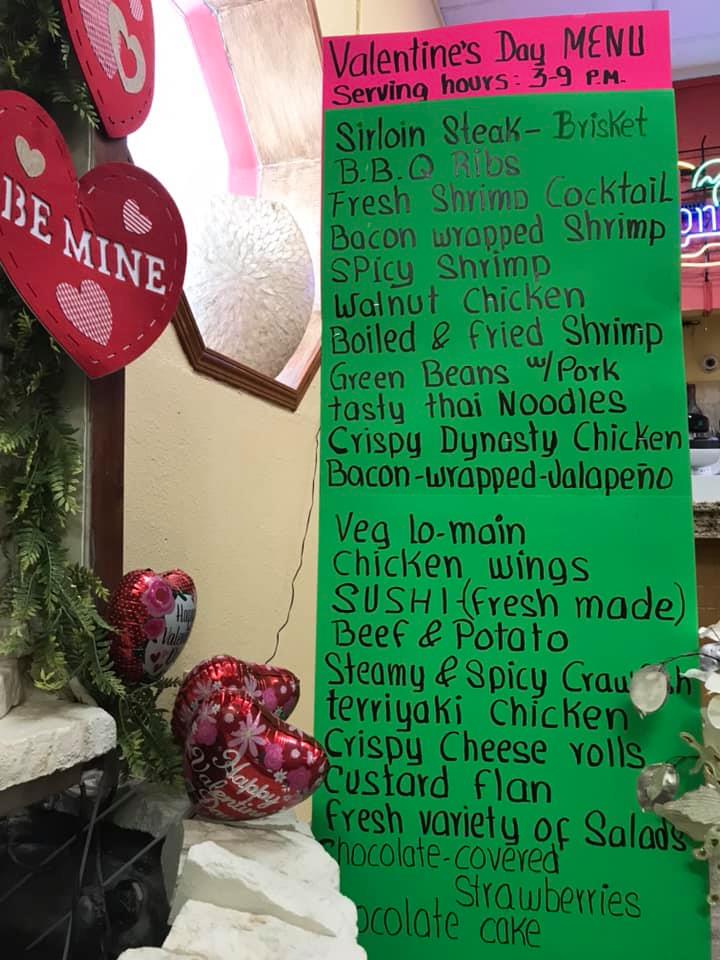 BE MINE
Valentine's Day MENU
Serving hours: 3-9 P.M.
Sirloin Steak- Brisket
B.B.Q Ribs
Fresh Shrimp Cocktail
Bacon wrapped Shrimp
Spicy Shrimp
Walnut Chicken
Boiled & fried Shrimp
Green Beans w/Pork
tasty thai Noodles
Crispy Dynasty Chicken
Bacon-wrapped-Jalapeño
Veg lo-main
Chicken wings
SUSHI-(fresh made)
Beef & Potato
Steamy & Spicy
terriyaki Chicken
Crispy Cheese rolls
Custard flan
fresh variety of Salads
Chocolate-covered
Strawberries
cake
Happy
Valentine